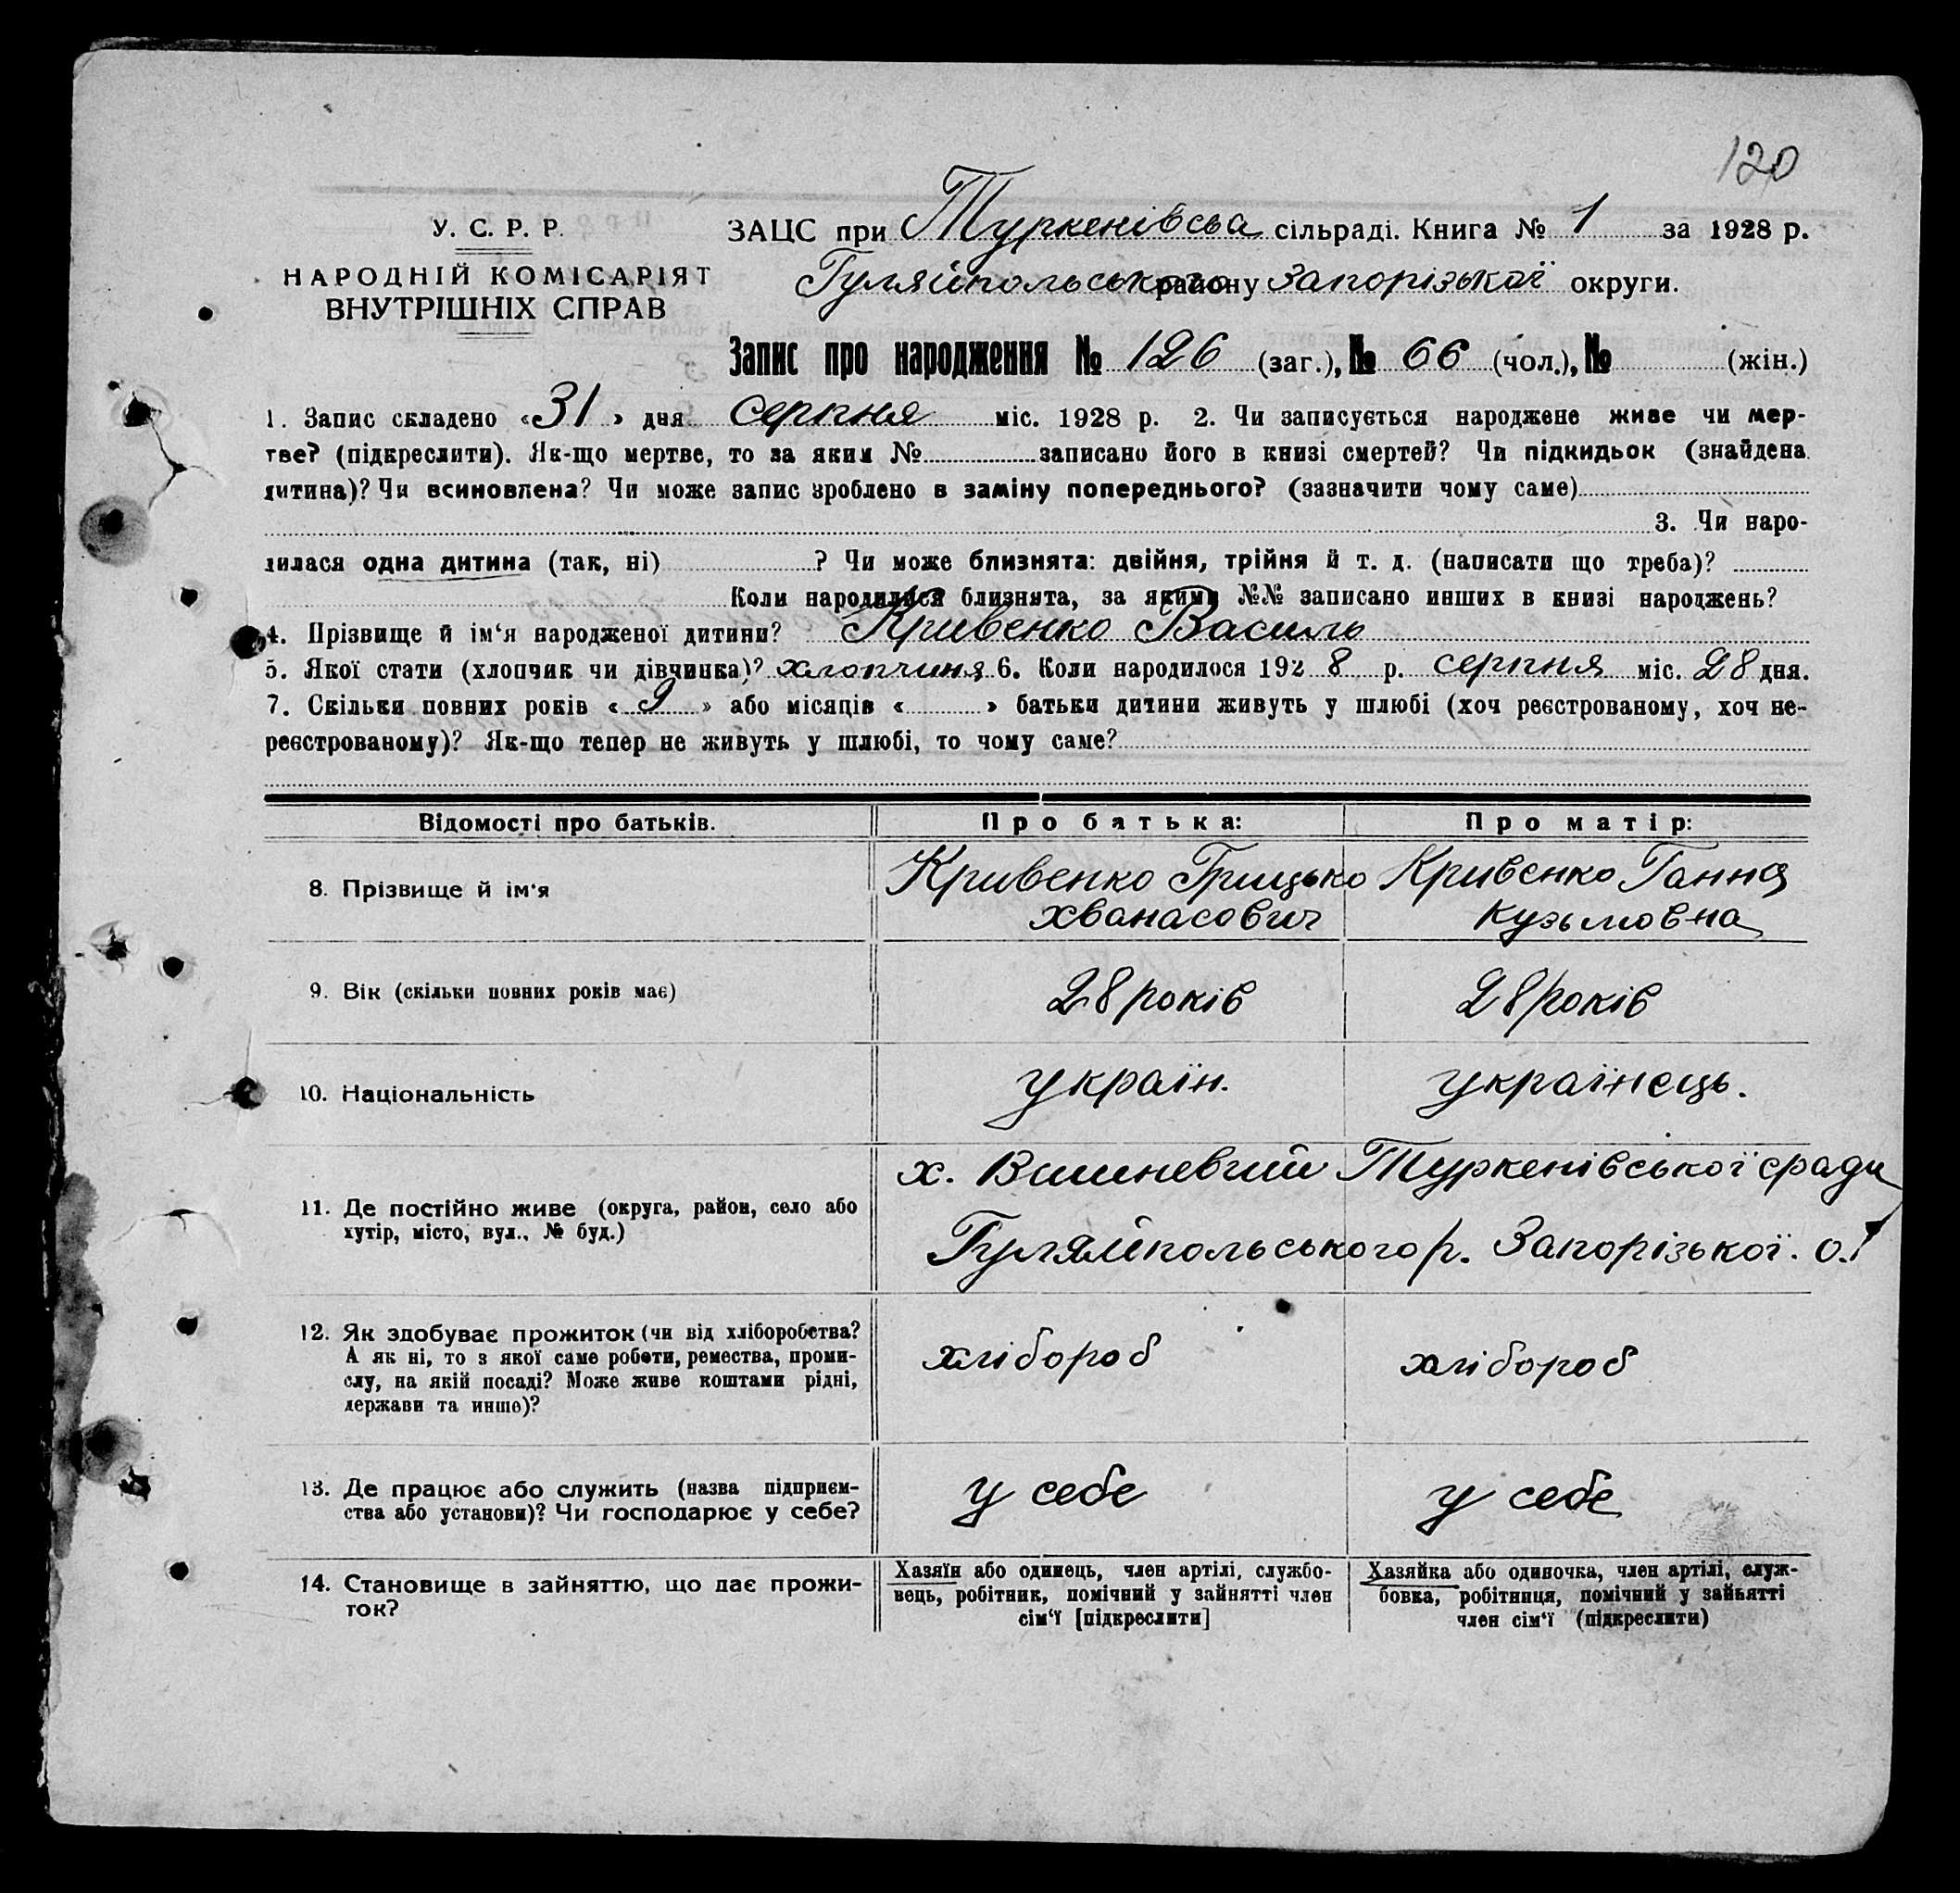 120
У. С. Р. Р.
НАРОДНІЙ КОМІСАРІЯТ
ВНУТРІШНІХ СПРАВ
ЗАЦС при Туркенівсьа сільраді. Книга № 1 за 1928 р.
Гуляйпольського району Запорізької округи.
Запис про народження № 126 (заг.), № 66 (чол.), № (жін.)
1. Запис складено «31» дня серпня міс. 1928 р. 2. Чи записується народжене живе чи мер-
тве? (підкреслити). Як-що мертве, то за яким № записано його в книзі смертей? Чи підкидьок (знайдена
дитина)? Чи всиновлена? Чи може запис зроблено в заміну попереднього? (зазначити чому саме)
3. Чи наро-
дилася одна дитина (так, ні) ? Чи може близнята: двійня, трійня й т. д. (написати що треба)?
Коли народилися близнята, за якими №№ записано инших в книзі народжень?
4. Прізвище й ім'я народженої дитини? Кривенко Василь
5. Якої стати (хлопчик чи дівчинка)? хлопчина 6. Коли народилося 1928 р. серпня міс. 28 дня.
7. Скільки повних років «9» або місяців « » батьки дитини живуть у шлюбі (хоч реєстрованому, хоч не-
реєстрованому)? Як-що тепер не живуть у шлюбі, то чому саме?
Відомості про батьків. Про батька: Про матір:
8. Прізвище й ім'я Кривенко Грицько Кривенко Ганна
хванасович Кузьмовна
9. Вік (скільки повних років має) 28 років 28 років
10. Національність україн. українець.
х. Вишневий Туркенівської сради
11. Де постійно живе (округа, район, село або
хутір, місто, вул., № буд.)
Гуляйпольського р. Запорізької. о.
12. Як здобуває прожиток (чи від хліборобства?
А як ні, то з якої саме роботи, ремества, проми-
слу, на якій посаді? Може живе коштами рідні,
держави та инше)?
хлібороб хлібороб
13. Де працює або служить (назва підприєм-
ства або установи)? Чи господарює у себе?
у себе у себе
14. Становище в зайняттю, що дає прожи-
ток?
Хазяїн або одинець, член артілі, службо-
вець, робітник, помічний у зайнятті член
сім'ї [підкреслити]
Хазяйка або одиночка, член артілі, служ-
бовка, робітниця, помічний у зайнятті
член сім'ї (підкреслити)